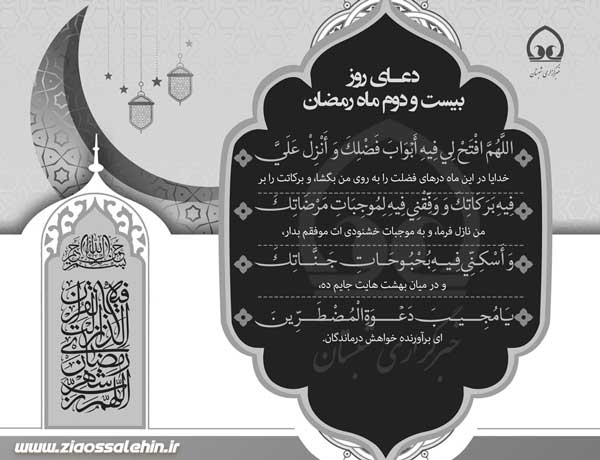 خبرگزاری شبستان
دعـای روز
بیست و دوم ماه رمضان
اللَّهُمَّ افْتَحْ لِي فِيهِ أَبْوَابَ فَضْلِكَ وَ أَنْزِلْ عَلَيَّ
خدایا در این ماه درهای فضلت را به روی من بگشا، و برکاتت را بر
فِيهِ بَرَكَاتِكَ وَ وَفِّقْنِي فِيهِ لِمُوجِبَاتِ مَرْضَاتِكَ
من نازل فرما، و به موجبات خشنودی ات موفقم بدار،
وَ أَسْكِنِّي فِيهِ بُحْبُوحَاتِ جَنَّاتِكَ
و در میان بهشت هایت جایم ده،
يَا مُجِيبَ دَعْوَةِ الْمُضْطَرِّينَ
ای برآورنده خواهش درماندگان.
خبرگزاری شبستان
بسم الله الرحمن الرحیم
اللهم رب شهر رمضان الذی انزلت فیه القرآن
www.ziaossalehin.ir